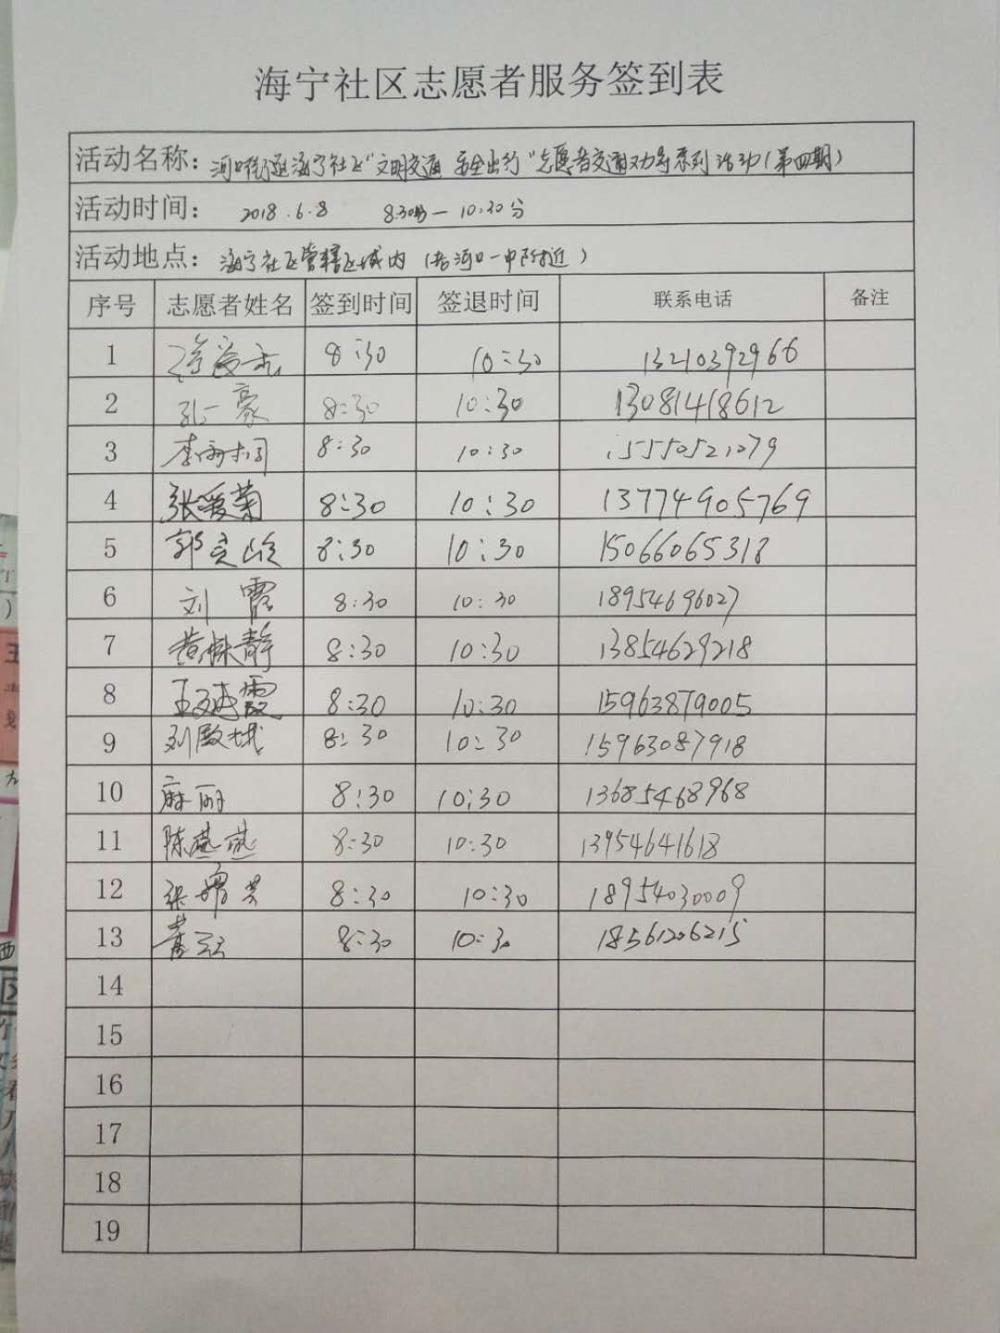 海宁社区志愿者服务签到表
活动名称：河口街道海宁社区"文明交通 安全出行"志愿者交通劝导系列活动(第四期)
活动时间： 2018.6.8 8:30分—10:30分
活动地点： 海宁社区管辖区域内(在河口一中附近)
序号 志愿者姓名 签到时间 签退时间 联系电话 备注
1 8:30 10:30 13210392966
2 孙一豪 8:30 10:30 13081418612
3 李雨桐 8:30 10:30 15550521079
4 张爱菊 8:30 10:30 13774905769
5 郭 8:30 10:30 15066065318
6 刘霞 8:30 10:30 18954696027
7 黄姝静 8:30 10:30 13854629218
8 王建霞 8:30 10:30 15963879005
9 刘殿城 8:30 10:30 15963087918
10 麻丽 8:30 10:30 13685468968
11 陈燕燕 8:30 10:30 13954641618
12 张 8:30 10:30 18954030009
13 8:30 10:30 18561206215
14
15
16
17
18
19